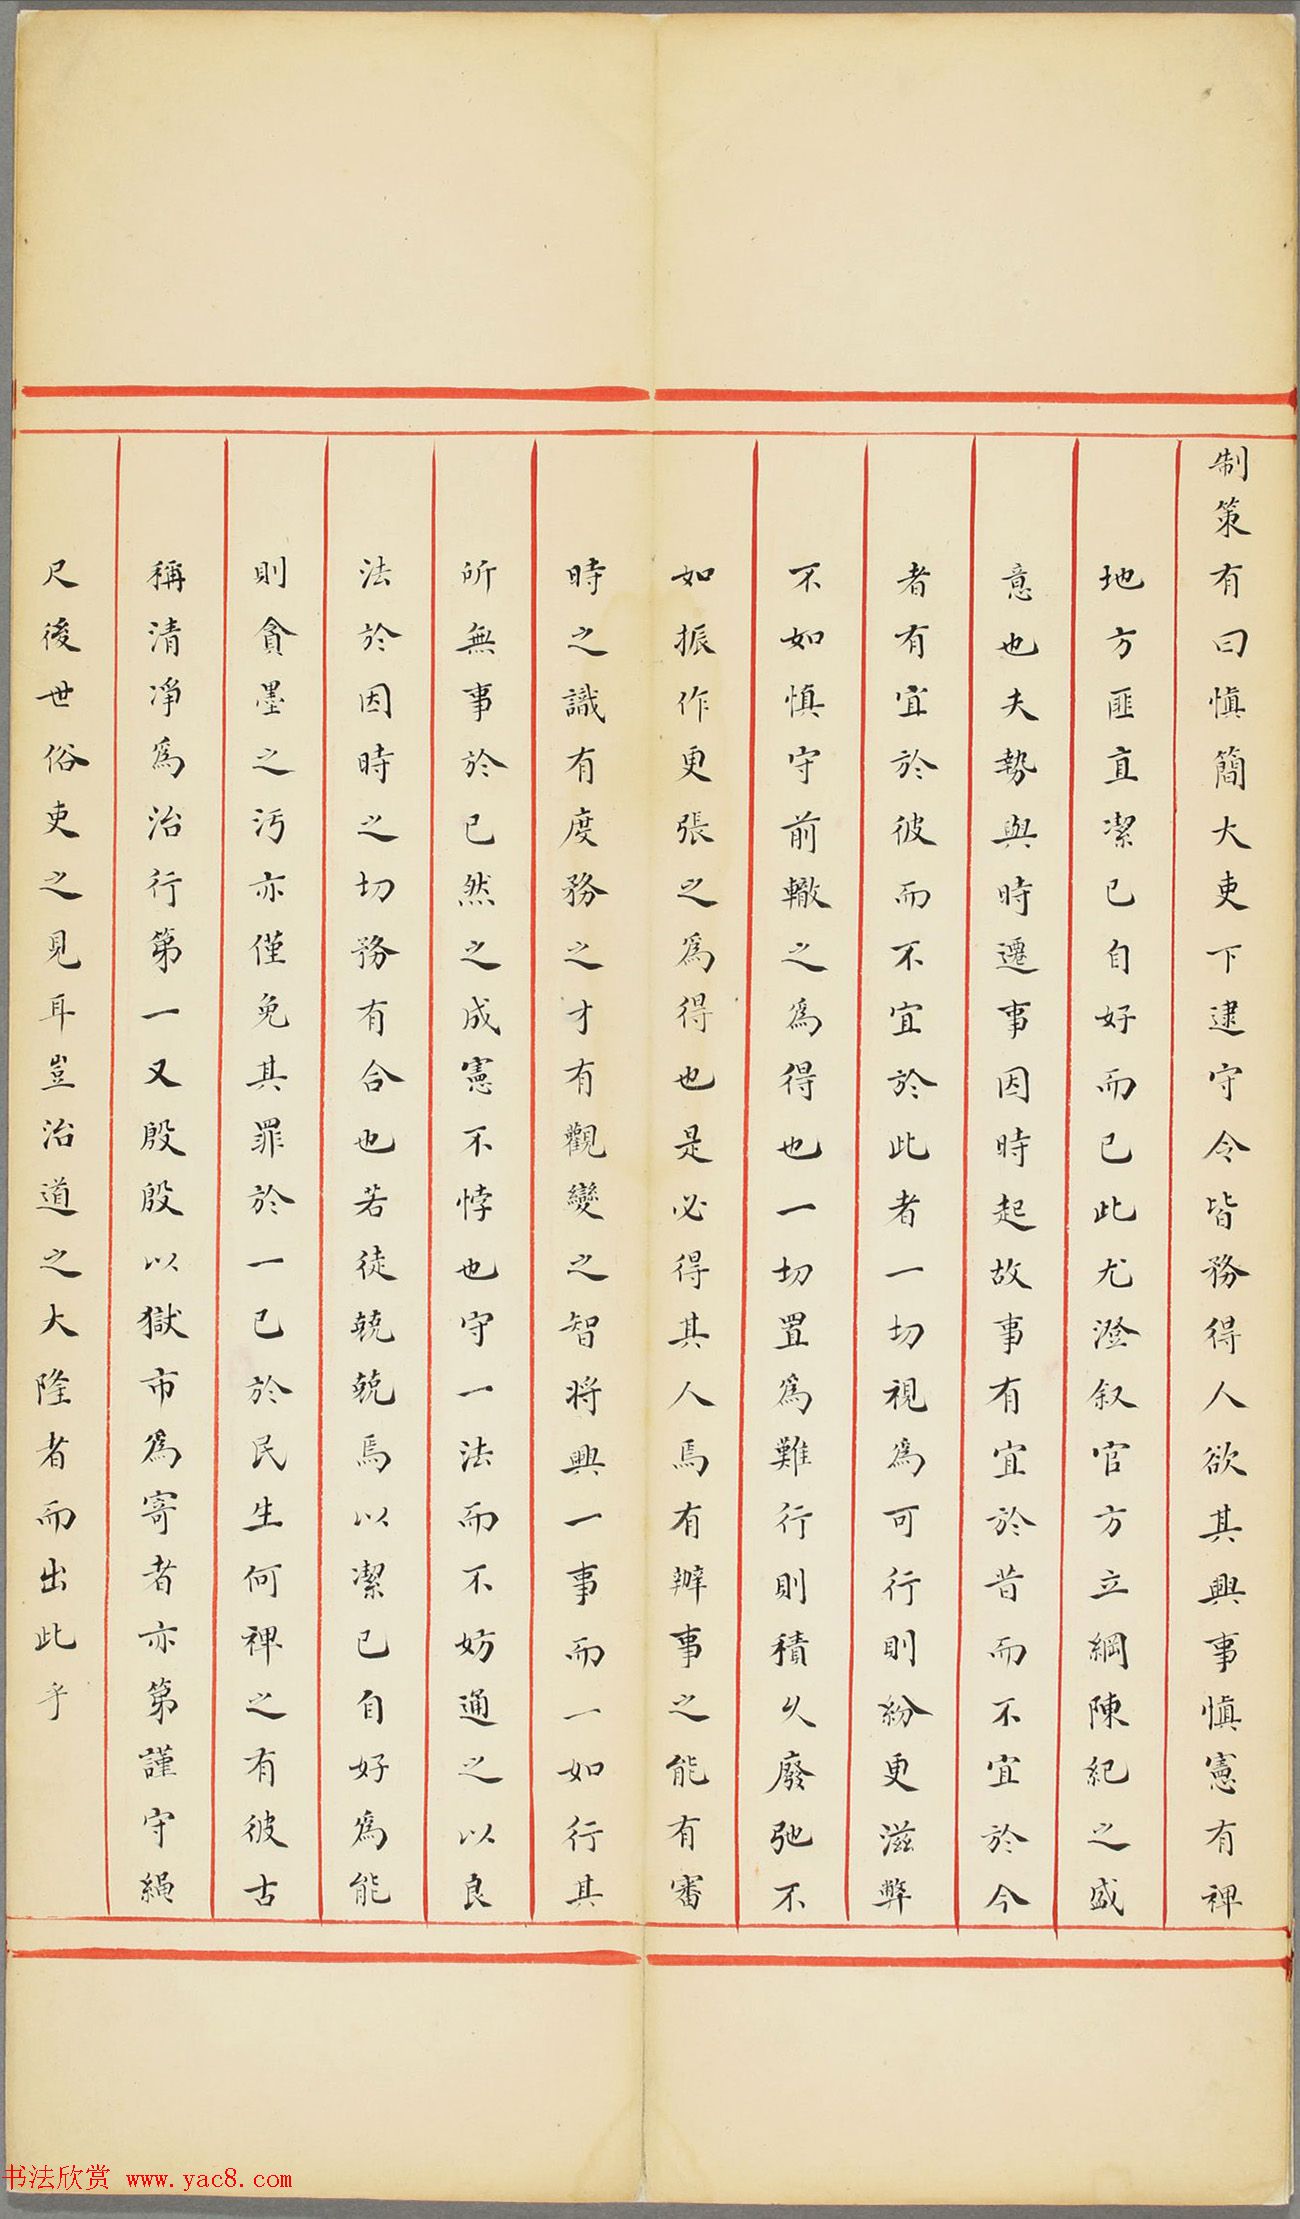 制策有曰慎簡大吏下逮守令皆務得人欲其興事慎憲有裨
地方匪直潔己自好而已此尤澄叙官方立綱陳紀之盛
意也夫勢與時遷事因時起故事有宜於昔而不宜於今
者有宜於彼而不宜於此者一切視為可行則紛更滋弊
不如慎守前轍之為得也一切置為難行則積久廢弛不
如振作更張之為得也是必得其人焉有辦事之能有審
時之識有度務之才有觀變之智將興一事而一如行其
所無事於已然之成憲不悖也守一法而不妨通之以良
法於因時之切務有合也若徒兢兢焉以潔己自好為能
則貪墨之污亦僅免其罪於一己於民生何裨之有彼古
稱清凈為治行第一又殷殷以獄市為寄者亦第謹守繩
尺後世俗吏之見耳豈治道之大隆者而出此乎
书法欣赏 www.yac8.com